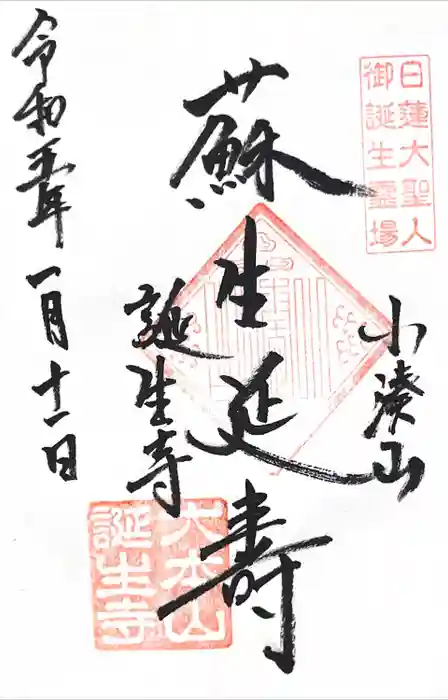 日蓮大聖人
御誕生霊場
小湊山
蘇生延壽
誕生寺
大本山
誕生寺
令和五年一月十一日